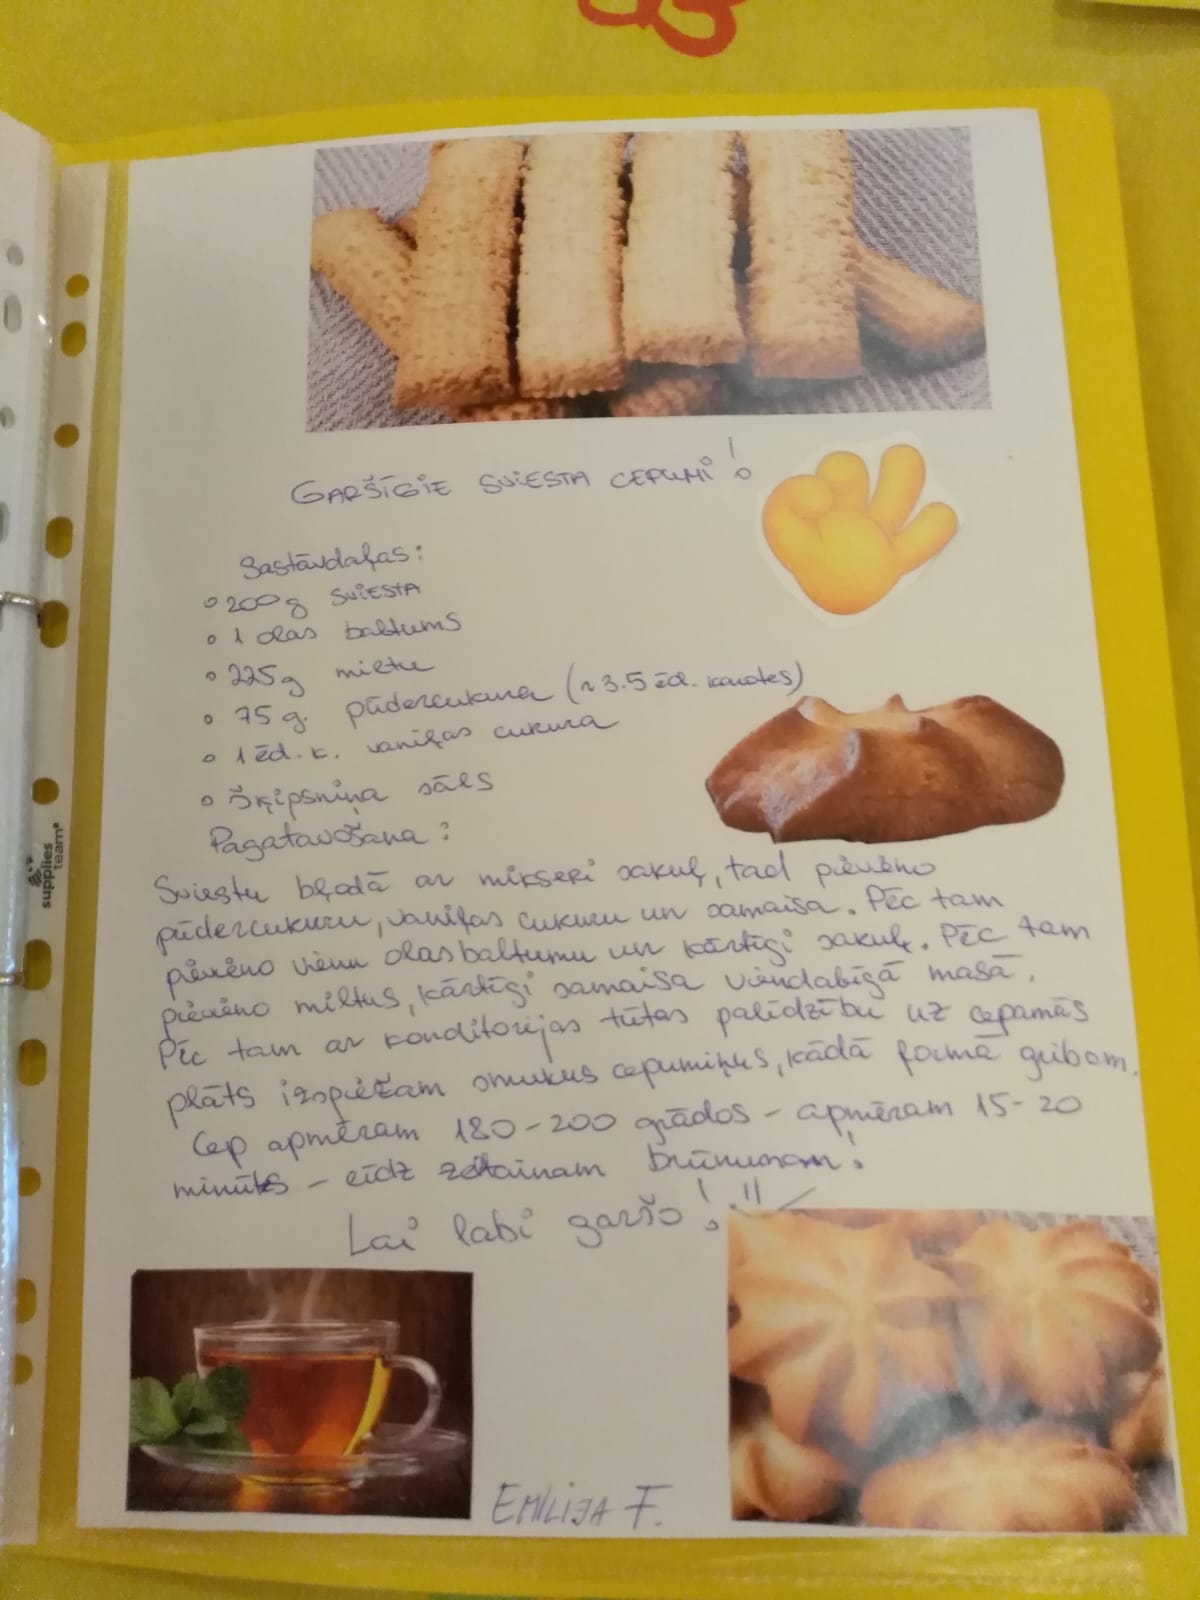 GARŠĪGIE SVIESTA CEPUMI!
Sastāvdaļas:
200g SVIESTA
1 olas baltums
225g miltu
75 g. pūdercukura (~3.5 ēd. karotes)
1 ēd. k. vaniļas cukura
Šķipsniņa sāls
Pagatavošana:
Sviestu bļodā ar mikseri sakuļ, tad pievieno
pūdercukuru, vaniļas cukuru un samaisa. Pēc tam
pievieno vienu olas baltumu un kārtīgi sakuļ. Pēc tam
pievieno miltus, kārtīgi samaisa viendabīgā masā.
Pēc tam ar konditorejas tūtas palīdzību uz cepamās
plāts izspiežam smukus cepumiņus, kādā formā gribam.
Cep apmēram 180-200 grādos - apmēram 15-20
minūtes - līdz zeltainam brūnumam!
Lai labi garšo!
EMILIJA F.
supplies
team